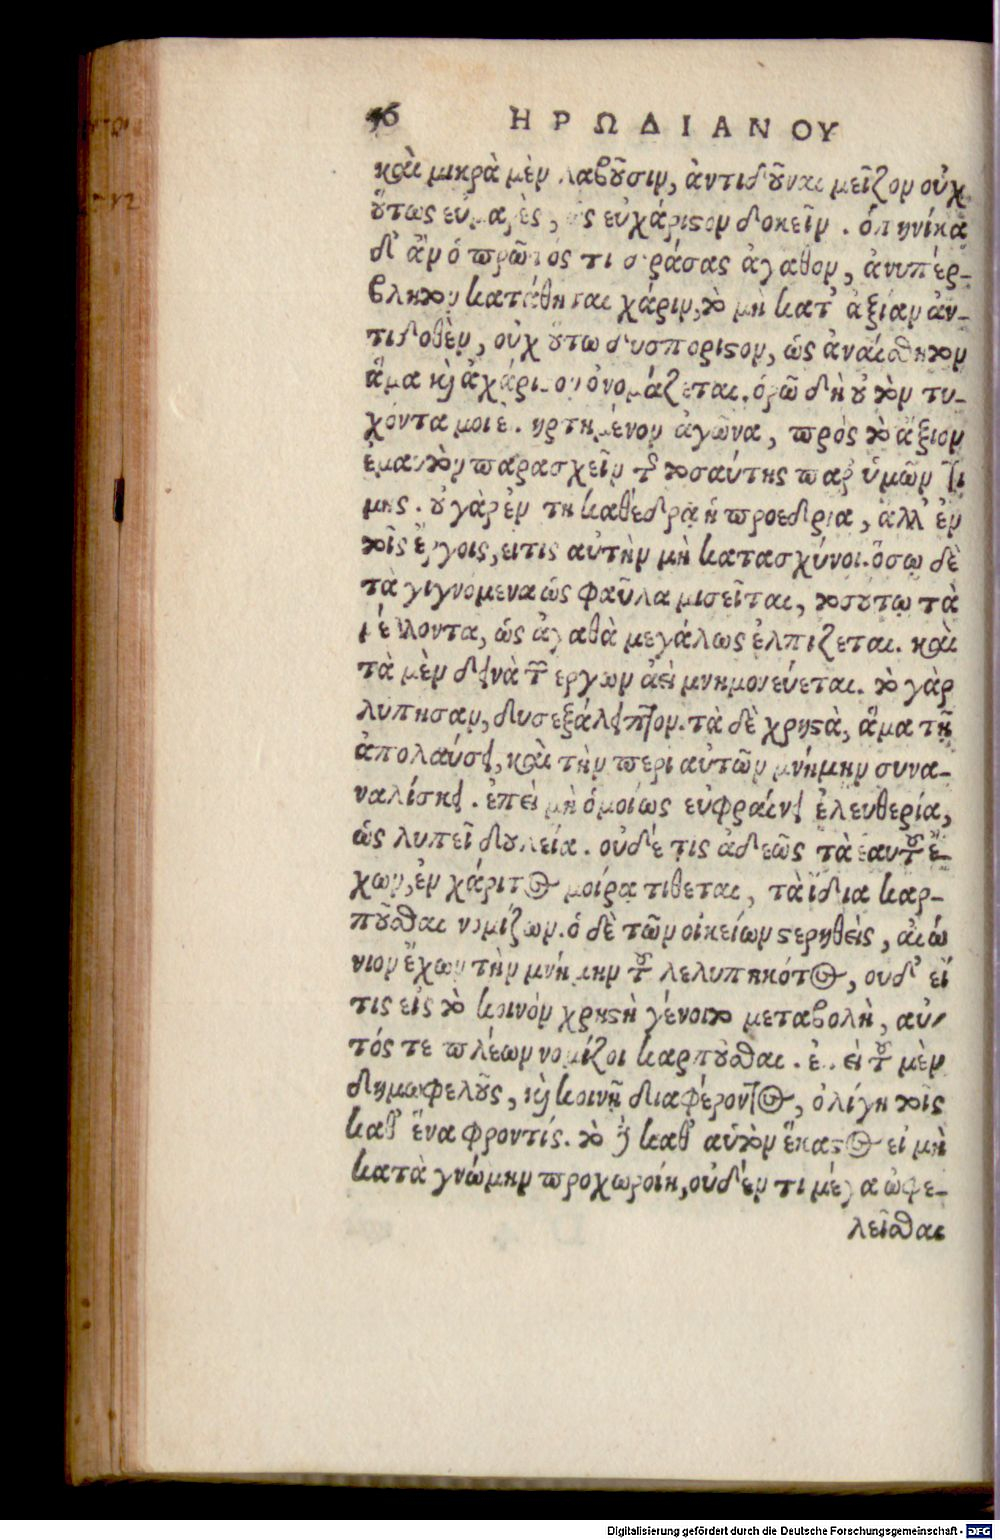 56 ΗΡΩΔΙΑΝΟΥ
καὶ μικρὰ μὲν λαβοῦσιν, ἀντιδοῦναι μεῖζον οὐχ
οὕτως εὐμαρὲς, ὡς εὐχάριστον δοκεῖν. ὁπηνίκα
δ' ἂν ὁ πρῶτός τι δράσας ἀγαθον, ἀνυπέρ-
βλητον κατάθηται χάριν, τὸ μὴ κατ' ἀξίαν ἀν-
τιδοθὲν, οὐχ οὕτω δυσποριστον, ὡς ἀναίσθητον
ἅμα καὶ ἀχάριστον ὀνομάζεται. ὁρῶ δὴ οὐ τὸν τυ-
χόντα μοι ἐπηρτημένον ἀγῶνα, πρὸς τὸ ἄξιον
ἐμαυτὸν παρασχεῖν τῆς τοσαύτης παρ' ὑμῶν τι
μης. οὐ γὰρ ἐν τη καθέδρα ἡ προεδρια, ἀλλ' ἐν
τοῖς ἔργοις, ειτις αὐτὴν μὴ κατασχύνοι. ὅσω δὲ
τὰ γιγνόμενα ὡς φαῦλα μισεῖται, τοσούτω τὰ
μέλλοντα, ὡς ἀγαθὰ μεγάλως ἐλπιζεται. καὶ
τὰ μὲν δεινὰ τῶν εργων ἀεὶ μνημονεύεται. τὸ γὰρ
λυπησαν, δυσεξάλειπτον. τὰ δὲ χρηστὰ, ἅμα τῇ
ἀπολαύσει, καὶ τὴν περι αὐτῶν μνήμην συνα-
ναλίσκει. ἐπεὶ μὴ ὁμοίως εὐφραίνει ἐλευθερία,
ὡς λυπεῖ δουλεία. οὐδέ τις ἀδεῶς τὰ ἑαυτοῦ ἔ-
χων, ἐν χάριτος μοίρα τιθεται, τὰ ἴδια καρ-
ποῦσθαι νομίζων. ὁ δὲ τῶν οἰκείων στερηθεὶς, αἰώ
νιον ἔχων τὴν μνήμην τοῦ λελυπηκότος, ουδ' εἴ
τις εἰς τὸ κοινὸν χρηστὴ γένοιτο μεταβολὴ, αὐ-
τός τε πλέων νομίζοι καρποῦσθαι. ἐπεὶ τοῦ μὲν
δημωφελοῦς, καὶ κοινῇ διαφέροντος, ὀλίγη τοῖς
καθ' ἕνα φροντίς. τὸ δὲ καθ' αὑτὸν ἕκαστος εἰ μὴ
κατὰ γνώμην προχωροίη, οὐδέν τι μέγα ὠφε-
λεῖσθαι
Digitalisierung gefördert durch die Deutsche Forschungsgemeinschaft - DFG